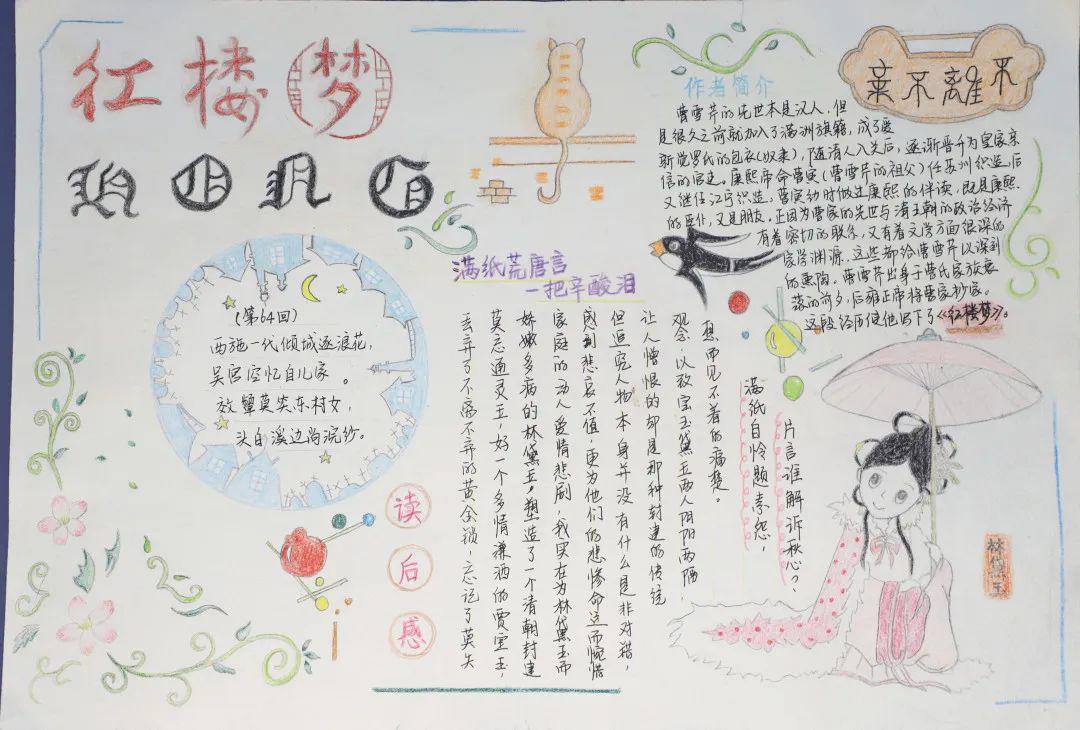 红楼梦
HONG
不離不棄
作者简介
曹雪芹的先世本是汉人，但
是很久之前就加入了满洲旗籍，成了爱
新觉罗氏的包衣(奴隶)，随清人入关后，逐渐晋升为皇家亲
信的官吏。康熙帝命曹寅(曹雪芹的祖父)任苏州织造，后
又继任江宁织造，曹寅幼时做过康熙的伴读，既是康熙
的臣仆，又是朋友。正因为曹家的先世与清王朝的政治经济
有着密切的联系，又有着文学方面很深的
家学渊源，这些都给曹雪芹以深刻
的熏陶。曹雪芹出身于曹氏家族衰
落的前夕，后雍正帝将曹家抄家。
这段经历使他写下了《红楼梦》。
满纸荒唐言
一把辛酸泪
(第64回)
西施一代倾城逐浪花，
吴宫空忆自儿家。
效颦莫笑东村女，
头白溪边尚浣纱。
读后感
丢弃了不离不弃的黄金锁，忘记了莫失
莫忘通灵玉，好一个多情潇洒的贾宝玉，
娇嫩多病的林黛玉，塑造了一个清朝封建
家庭的动人爱情悲剧，我实在为林黛玉而
感到悲哀不值，更为他们的悲惨命运而惋惜
但追究人物本身并没有什么是非对错，
让人憎恨的却是那种封建的传统
观念，以致宝玉黛玉两人阴阳两隔，
想而见不着的痛楚。
满纸自怜题素怨，
片言谁解诉秋心？
林黛玉